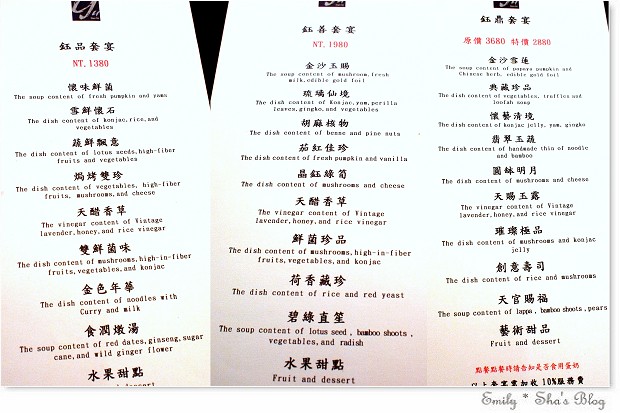 鈺品套宴
NT,1380
懷味鮮菌
The soup content of fresh pumpkin and yams
雪鮮懷石
The dish content of konjac,rice,and
vegetables
蔬鮮飄意
The dish content of lotus seeds,high-fiber
fruits and vegetables
焗烤雙珍
The dish content of vegetables, high-fiber
fruits, mushrooms,and cheese
天醋香草
The vinegar content of Vintage
lavender,honey,and rice vinegar
雙鮮菌味
The dish content of mushrooms,high-in-fiber
fruits,vegetables,and konjac
金色年華
The dish content of noodles with
Curry and milk
食潤燉湯
The soup content of red dates,ginseng,sugar
cane,and wild ginger flower
水果甜點
鈺善套宴
NT,1980
金沙玉賜
The soup content of mushroom,fresh
milk,edible gold foil
琉璃仙境
The dish content of Konjac,yum,perilla
leaves,gingko,and vegetables
胡麻核物
The dish content of bense and pine nuts
茄紅佳珍
The dish content of fresh pumpkin and vanilla
晶鈺綠筍
The dish content of mushrooms and cheese
天醋香草
The vinegar content of Vintage
lavender,honey,and rice vinegar
鮮菌珍品
The dish content of mushrooms,high-in-fiber
fruits,vegetables,and konjac
荷香藏珍
The dish content of rice and red yeast
碧綠直笙
The soup content of lotus seed , bamboo shoots ,
vegetables, and radish
水果甜點
Fruit and dessert
鈺鼎套宴
原價 3680 特價 2880
金沙雪蓮
The soup content of papaya pumpkin and
Chinese herb, edible gold foil
典藏珍品
The dish content of vegetables, truffles and
loofah soup
懷藝清境
The dish content of konjac jelly, yam, gingko
翡翠玉蔬
The dish content of handmade thin of noodle
and bamboo
圓缽明月
The dish content of mushrooms and cheese
天賜玉露
The vinegar content of Vintage
lavender,honey,and rice vinegar
璀璨極品
The dish content of mushrooms and konjac
jelly
創意壽司
The dish content of rice and mushrooms
天官賜福
The soup content of lappa , bamboo shoots ,pears
藝術甜品
Fruit and dessert
點餐點餐時請告知是否食用蛋奶
以上套宴需加收 10%服務費
Emily * Sha's Blog